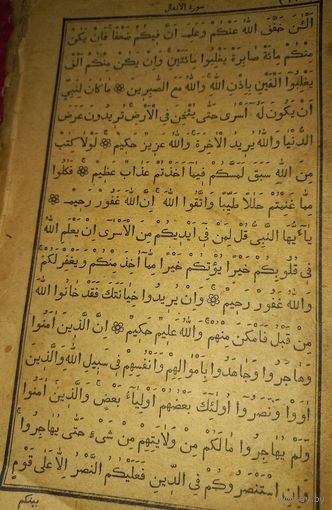 سورة الانفال
اَلْـٰٔنَ خَفَّفَ اللهُ عَنْكُمْ وَعَلِمَ اَنَّ فِيكُمْ ضَعْفًا فَاِنْ يَكُنْ
مِنْكُمْ مِائَةٌ صَابِرَةٌ يَغْلِبُوا مِائَتَيْنِ وَاِنْ يَكُنْ مِنْكُمْ اَلْفٌ
يَغْلِبُوا اَلْفَيْنِ بِاِذْنِ اللهِ وَاللهُ مَعَ الصَّابِرِينَ ۞ مَا كَانَ لِنَبِيٍّ
اَنْ يَكُونَ لَهُ اَسْرٰى حَتّٰى يُثْخِنَ فِي الْاَرْضِ تُرِيدُونَ عَرَضَ
الدُّنْيَا وَاللهُ يُرِيدُ الْاٰخِرَةَ وَاللهُ عَزِيزٌ حَكِيمٌ ۞ لَوْلَا كِتَابٌ
مِنَ اللهِ سَبَقَ لَمَسَّكُمْ فِيمَا اَخَذْتُمْ عَذَابٌ عَظِيمٌ ۞ فَكُلُوا
مِمَّا غَنِمْتُمْ حَلَالًا طَيِّبًا وَاتَّقُوا اللهَ اِنَّ اللهَ غَفُورٌ رَحِيمٌ ۞
يَا اَيُّهَا النَّبِيُّ قُلْ لِمَنْ فِي اَيْدِيكُمْ مِنَ الْاَسْرٰى اِنْ يَعْلَمِ اللهُ
فِي قُلُوبِكُمْ خَيْرًا يُؤْتِكُمْ خَيْرًا مِمَّا اُخِذَ مِنْكُمْ وَيَغْفِرْ لَكُمْ
وَاللهُ غَفُورٌ رَحِيمٌ ۞ وَاِنْ يُرِيدُوا خِيَانَتَكَ فَقَدْ خَانُوا اللهَ
مِنْ قَبْلُ فَاَمْكَنَ مِنْهُمْ وَاللهُ عَلِيمٌ حَكِيمٌ ۞ اِنَّ الَّذِينَ اٰمَنُوا
وَهَاجَرُوا وَجَاهَدُوا بِاَمْوَالِهِمْ وَاَنْفُسِهِمْ فِي سَبِيلِ اللهِ وَالَّذِينَ
اٰوَوْا وَنَصَرُوا اُولٰئِكَ بَعْضُهُمْ اَوْلِيَاءُ بَعْضٍ وَالَّذِينَ اٰمَنُوا
وَلَمْ يُهَاجِرُوا مَا لَكُمْ مِنْ وَلَايَتِهِمْ مِنْ شَيْءٍ حَتّٰى يُهَاجِرُوا
وَاِنِ اسْتَنْصَرُوكُمْ فِي الدِّينِ فَعَلَيْكُمُ النَّصْرُ اِلَّا عَلٰى قَوْمٍ
بينكم